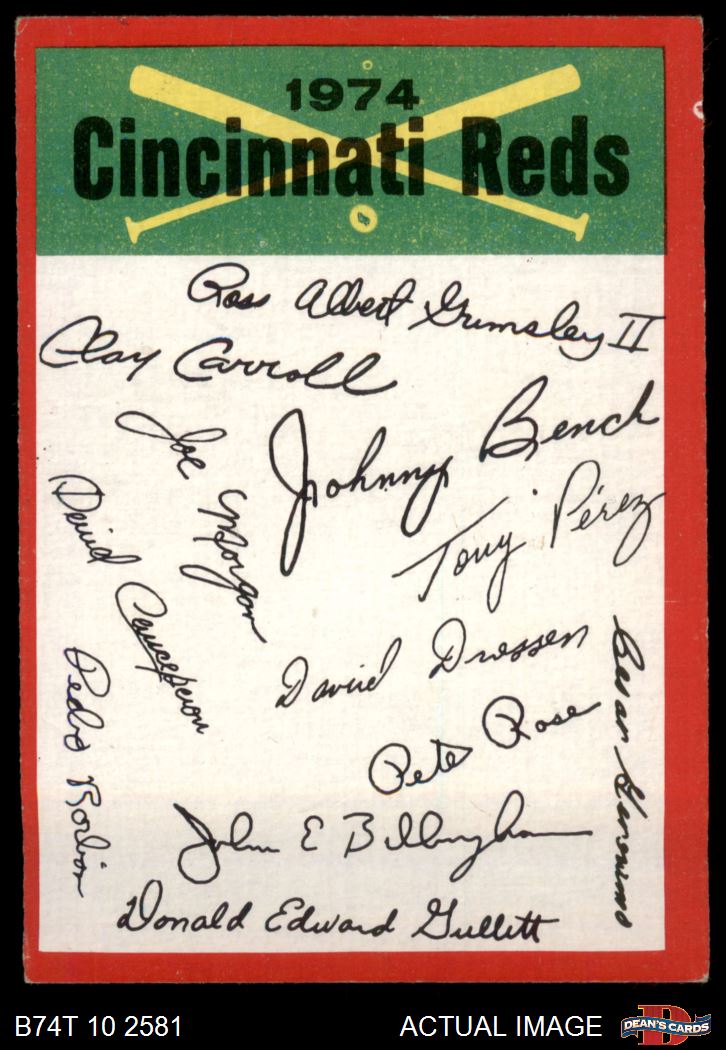 1974
Cincinnati Reds
Ross Albert Grimsley II
Clay Carroll
Johnny Bench
Joe Morgan
Tony Pérez
David Concepcion
David Driessen
Cesar Geronimo
Pedro Borbon
Pete Rose
John E Billingham
Donald Edward Gullett
B74T 10 2581
ACTUAL IMAGE
D
DEAN'S CARDS